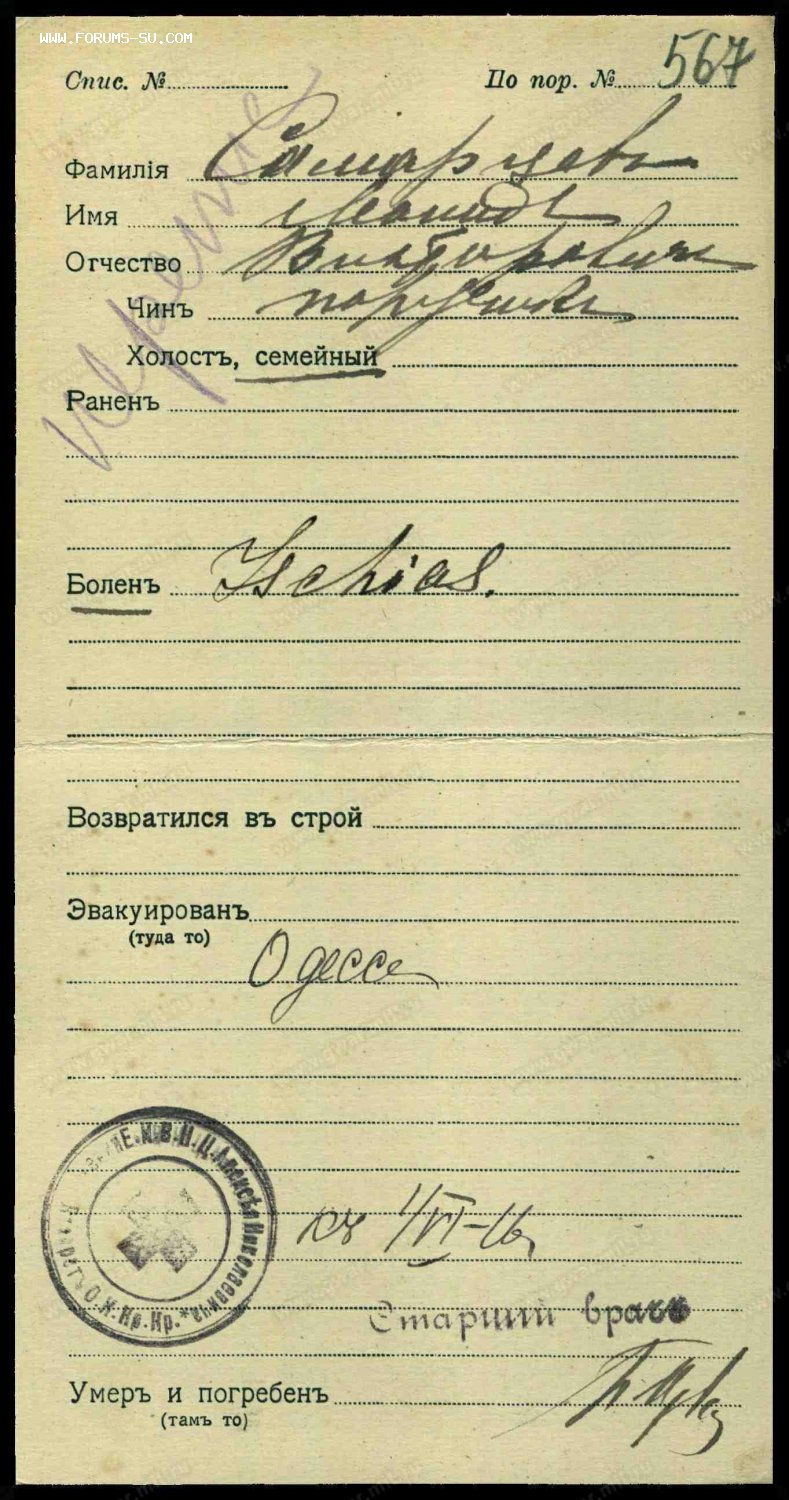 WWW.FORUMS-SU.COM
Спис. № По пор. № 567
Фамилія Самарцевъ
Имя Леонидъ
Отчество Викторовичъ
Чинъ поручикъ
Холостъ, семейный
Раненъ
Боленъ Ischias.
Возвратился въ строй
Эвакуированъ
(туда то)
Одесса
Е.И.В.Н.Ц. Алексѣя Николаевича * Лазаретъ О.К.Кр.Кр.
4/VI-16
Старшій врачъ
Умеръ и погребенъ
(тамъ то)